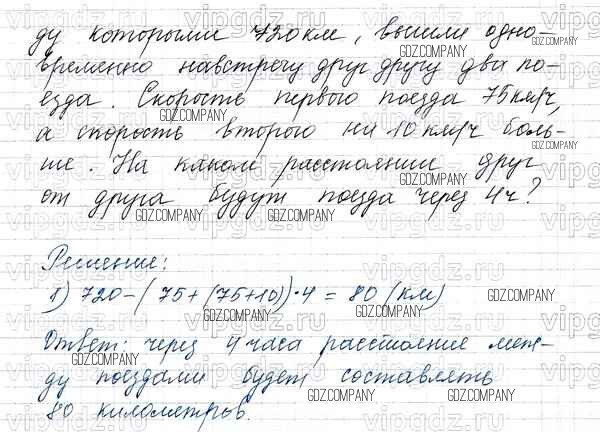 ду которыми 720 км, вышли одно-
временно навстречу друг другу два по-
езда. Скорость первого поезда 75 км/ч,
а скорость второго на 10 км/ч боль-
ше. На каком расстоянии друг
от друга будут поезда через 4 ч?
Решение:
1) 720-(75+(75+10))·4 = 80 (км)
Ответ: через 4 часа расстояние меж-
ду поездами будет составлять
80 километров.